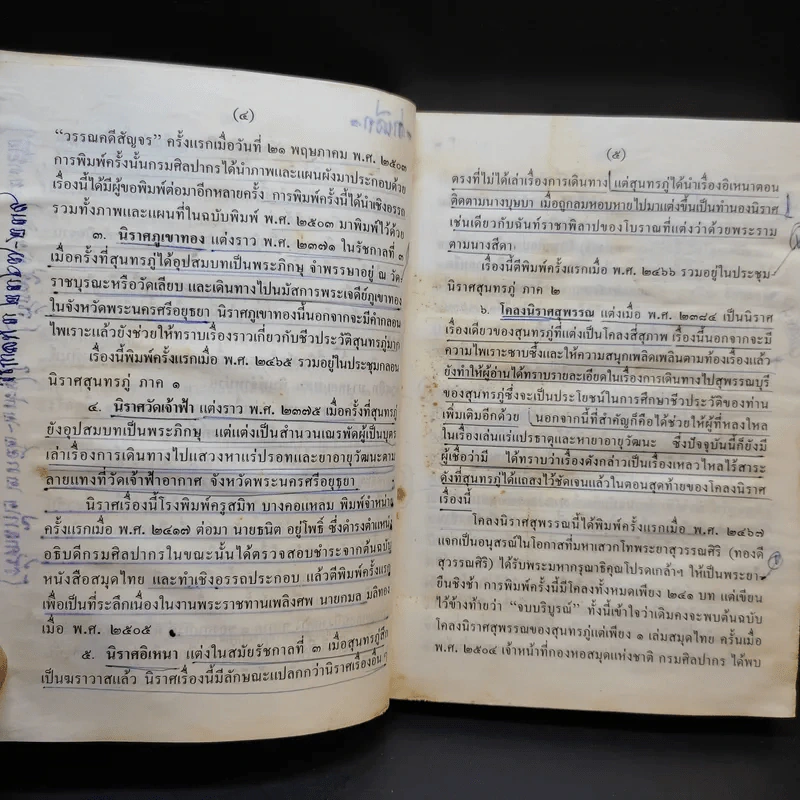 (๔)
"วรรณคดีสัญจร" ครั้งแรกเมื่อวันที่ ๒๑ พฤษภาคม พ.ศ. ๒๕๐๓
การพิมพ์ครั้งนั้นกรมศิลปากรได้นำภาพและแผนผังมาประกอบด้วย
เรื่องนี้ได้มีผู้ขอพิมพ์ต่อมาอีกหลายครั้ง การพิมพ์ครั้งนี้ได้นำเชิงอรรถ
รวมทั้งภาพและแผนที่ในฉบับพิมพ์ พ.ศ. ๒๕๐๓ มาพิมพ์ไว้ด้วย
๓. นิราศภูเขาทอง แต่งราว พ.ศ. ๒๓๗๑ ในรัชกาลที่ ๓
เมื่อครั้งที่สุนทรภู่ได้อุปสมบทเป็นพระภิกษุ จำพรรษาอยู่ ณ วัด
ราชบุรณะหรือวัดเลียบ และเดินทางไปนมัสการพระเจดีย์ภูเขาทอง
ในจังหวัดพระนครศรีอยุธยา นิราศภูเขาทองนี้นอกจากจะมีคำกลอน
ไพเราะแล้วยังช่วยให้ทราบเรื่องราวเกี่ยวกับชีวประวัติสุนทรภู่มาก
เรื่องนี้พิมพ์ครั้งแรกเมื่อ พ.ศ. ๒๔๖๕ รวมอยู่ในประชุมกลอน
นิราศสุนทรภู่ ภาค ๑
๔. นิราศวัดเจ้าฟ้า แต่งราว พ.ศ. ๒๓๗๕ เมื่อครั้งที่สุนทรภู่
ยังอุปสมบทเป็นพระภิกษุ แต่แต่งเป็นสำนวนเณรพัดผู้เป็นบุตร
เล่าเรื่องการเดินทางไปแสวงหาแร่ปรอทและยาอายุวัฒนะตาม
ลายแทงที่วัดเจ้าฟ้าอากาศ จังหวัดพระนครศรีอยุธยา
นิราศเรื่องนี้โรงพิมพ์ครูสมิท บางคอแหลม พิมพ์จำหน่าย
ครั้งแรกเมื่อ พ.ศ. ๒๔๑๗ ต่อมา นายธนิต อยู่โพธิ์ ซึ่งดำรงตำแหน่ง
อธิบดีกรมศิลปากรในขณะนั้นได้ตรวจสอบชำระจากต้นฉบับ
หนังสือสมุดไทย และทำเชิงอรรถประกอบ แล้วตีพิมพ์ครั้งแรก
เพื่อเป็นที่ระลึกเนื่องในงานพระราชทานเพลิงศพ นายเกมล มลิทอง
เมื่อ พ.ศ. ๒๕๐๕
๕. นิราศอิเหนา แต่งในสมัยรัชกาลที่ ๓ เมื่อสุนทรภู่สึก
เป็นฆราวาสแล้ว นิราศเรื่องนี้มีลักษณะแปลกกว่านิราศเรื่องอื่น ๆ
(๕)
ตรงที่ไม่ได้เล่าเรื่องการเดินทาง แต่สุนทรภู่ได้นำเรื่องอิเหนาตอน
ติดตามนางบุษบา เมื่อถูกลมหอบหายไปมาแต่งขึ้นเป็นทำนองนิราศ
เช่นเดียวกับฉันท์ราชาพิลาปของโบราณที่แต่งว่าด้วยพระราม
ตามนางสีดา
เรื่องนี้ตีพิมพ์ครั้งแรกเมื่อ พ.ศ. ๒๔๖๖ รวมอยู่ในประชุม
นิราศสุนทรภู่ ภาค ๒
๖. โคลงนิราศสุพรรณ แต่งเมื่อ พ.ศ. ๒๓๘๔ เป็นนิราศ
เรื่องเดียวของสุนทรภู่ที่แต่งเป็นโคลงสี่สุภาพ เรื่องนี้นอกจากจะมี
ความไพเราะซาบซึ้งและให้ความสนุกเพลิดเพลินตามท้องเรื่องแล้ว
ยังทำให้ผู้อ่านได้ทราบรายละเอียดในเรื่องการเดินทางไปสุพรรณบุรี
ของสุนทรภู่ซึ่งจะเป็นประโยชน์ในการศึกษาชีวประวัติของท่าน
เพิ่มเติมอีกด้วย นอกจากนี้ที่สำคัญก็คือได้ช่วยให้ผู้ที่หลงใหล
ในเรื่องเล่นแร่แปรธาตุและหายาอายุวัฒนะ ซึ่งปัจจุบันนี้ก็ยังมี
ผู้เชื่อว่ามี ได้ทราบว่าเรื่องดังกล่าวเป็นเรื่องเหลวไหลไร้สาระ
ดังที่สุนทรภู่ได้แถลงไว้ชัดเจนแล้วในตอนสุดท้ายของโคลงนิราศ
เรื่องนี้
โคลงนิราศสุพรรณนี้ได้พิมพ์ครั้งแรกเมื่อ พ.ศ. ๒๔๖๗
แจกเป็นอนุสรณ์ในโอกาสที่มหาเสวกโทพระยาสุวรรณศิริ (ทองดี
สุวรรณศิริ) ได้รับพระมหากรุณาธิคุณโปรดเกล้าฯ ให้เป็นพระยา
ยืนชิงช้า การพิมพ์ครั้งนี้มีโคลงทั้งหมดเพียง ๒๔๑ บท แต่เขียน
ไว้ข้างท้ายว่า "จบบริบูรณ์" ทั้งนี้เข้าใจว่าเดิมคงจะพบต้นฉบับ
โคลงนิราศสุพรรณของสุนทรภู่แต่เพียง ๑ เล่มสมุดไทย ครั้นเมื่อ
พ.ศ. ๒๕๐๔ เจ้าหน้าที่กองหอสมุดแห่งชาติ กรมศิลปากร ได้พบ